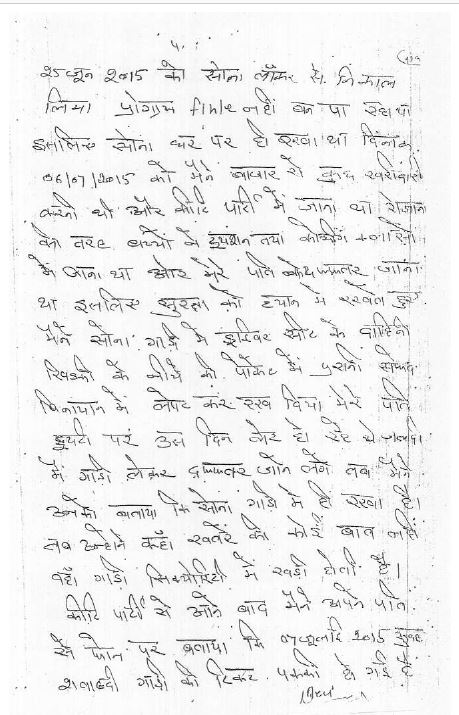 5.
25 जून 2015 को सोना लॉकर से निकाल
लिया प्रोग्राम final नहीं बन पा रहा था
इसलिए सोना घर पर ही रखा था दिनांक
06/07/2015 को मैंने बाजार से कुछ खरीदारी
करनी थी और कीटि पार्टी में जाना था रोजाना
की तरह बच्चों में ट्यूशन तथा कोचिंग क्लासों
में जाना था और मेरे पति को दफ्तर जाना
था इसलिए सुरक्षा को ध्यान में रखते हुए
मैंने सोना गाड़ी में ड्राइवर सीट के दाहिनी
खिड़की के नीचे की पॉकेट में पुरानी सफेद
बनियान में लपेट कर रख दिया मेरे पति
ड्यूटी पर उस दिन लेट हो रहे थे जल्दी
में गाड़ी लेकर दफ्तर जाने लगे तब मैंने
उनको बताया कि सोना गाड़ी में ही रखा है
तब उन्होंने कहाँ खतरे की कोई बात नहीं
वहाँ गाड़ी सिक्योरिटी में खड़ी होती है।
कीटि पार्टी से आने बाद मैंने अपने पति
से फोन पर बताया कि जुलाई 2015 सुबह
शताब्दी गाड़ी की टिकट पक्की हो गई है